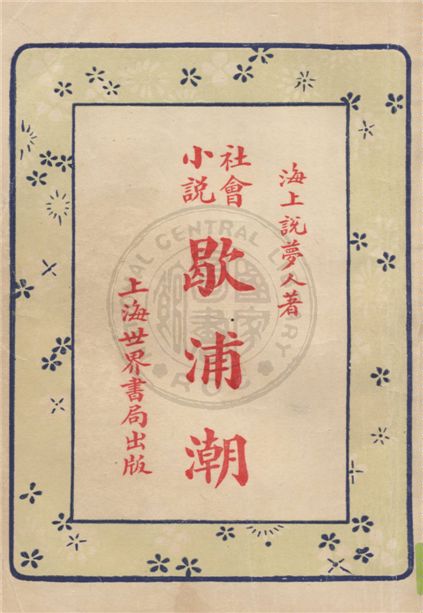 海上說夢人著
社會
小説
歇浦潮
上海世界書局出版
NATIONAL CENTRAL LIBRARY
R.O.C.
國家圖書館